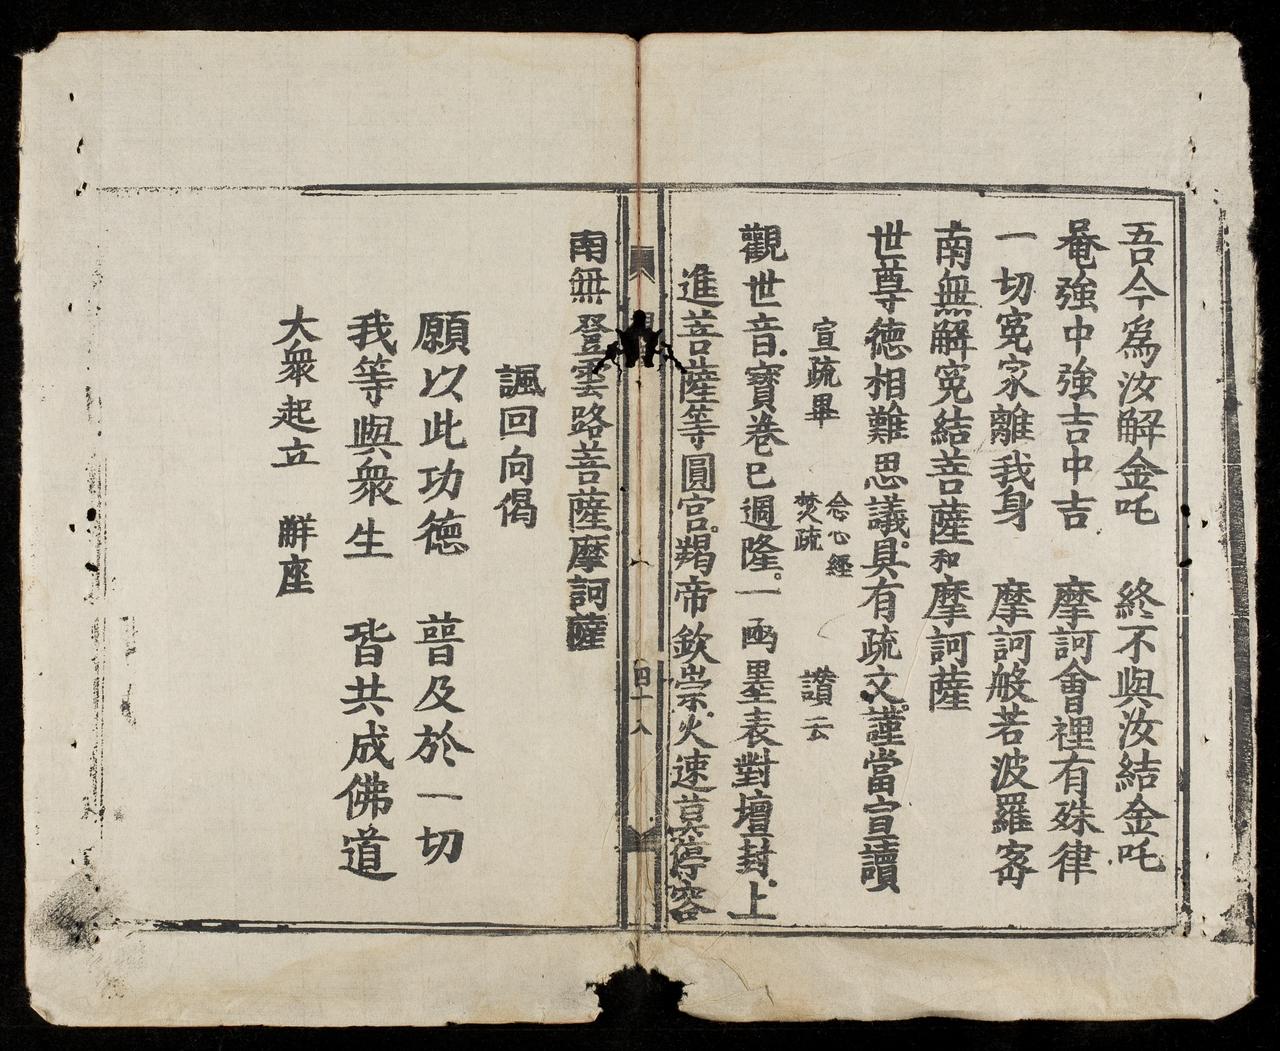 吾今爲汝解金吒 終不與汝結金吒
唵強中強吉中吉 摩訶會裡有殊律
一切寃家離我身 摩訶般若波羅宻
南無解寃結菩薩和摩訶薩
世尊德相難思議具有疏文謹當宣讀
宣疏畢 念心經 焚疏 讚云
觀世音寶卷已週隆一凾墨表對壇封上
進菩薩等圓宫羯帝欽崇火速莫停容
四十八
南無登雲路菩薩摩訶薩
諷回向偈
願以此功德 普及於一切
我等與衆生 皆共成佛道
大衆起立 觧座